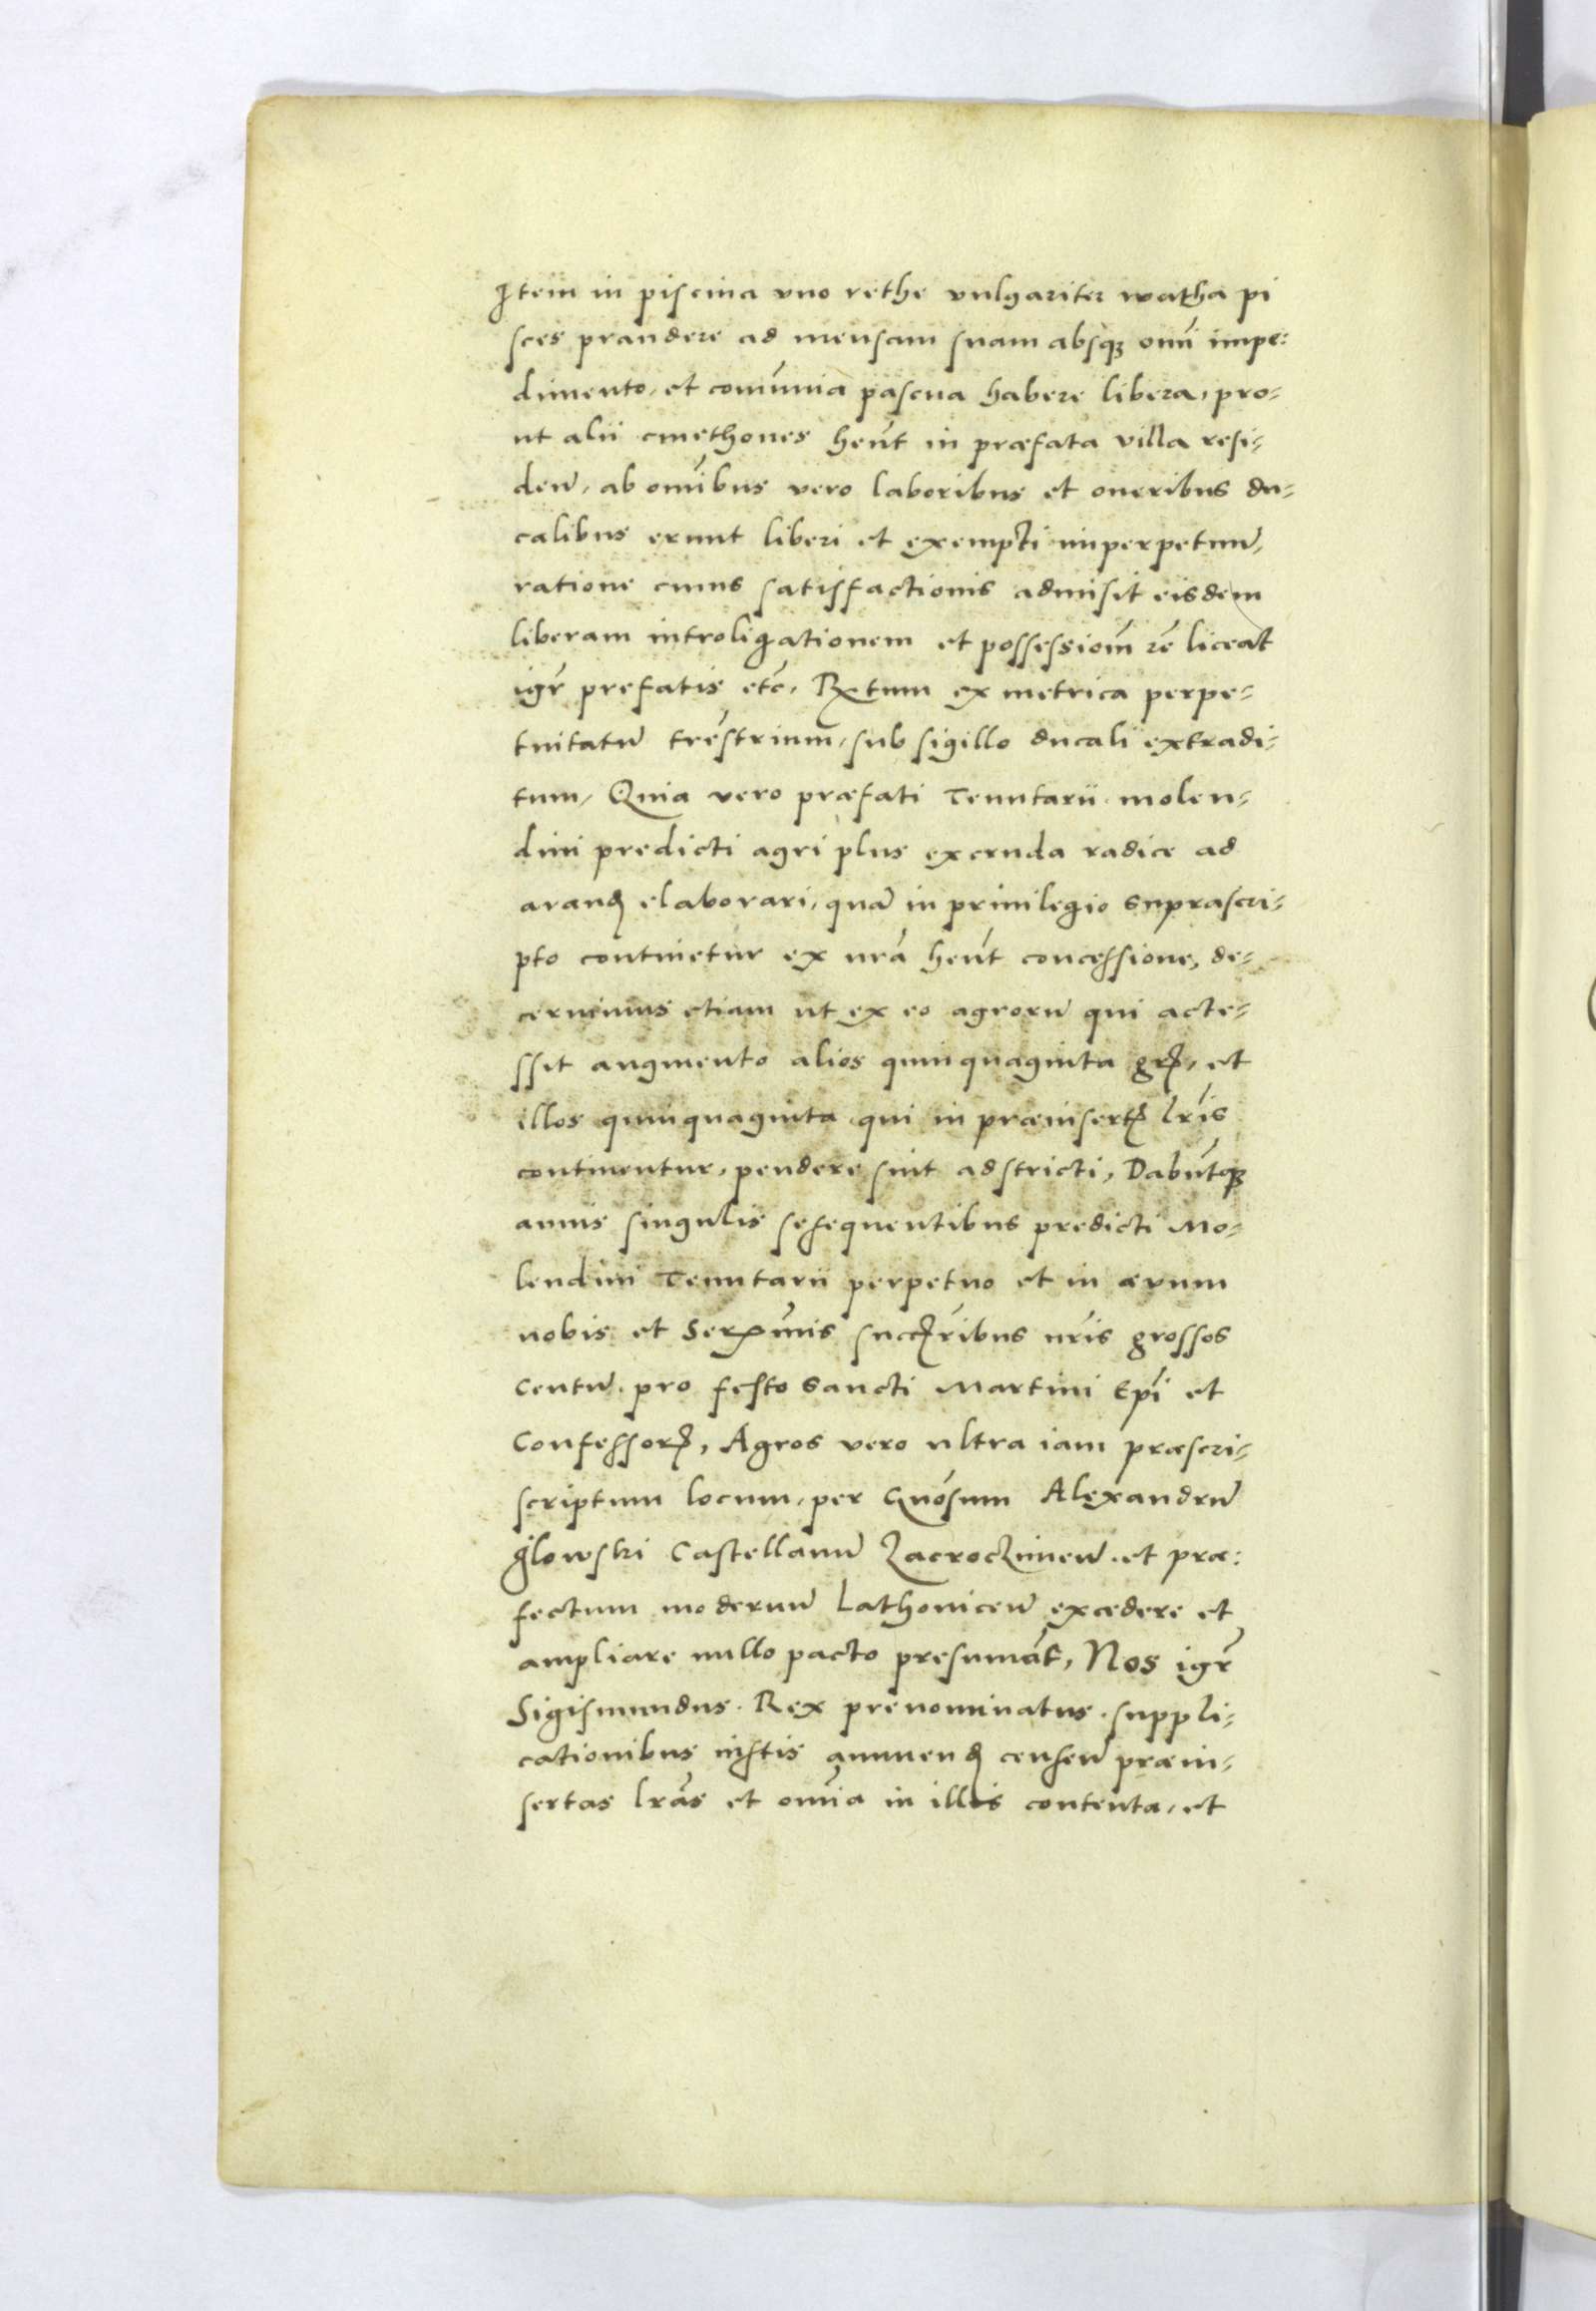 Item in piscina vno rethe vulgariter watha pi
sces prandere ad mensam suam absqꝫ omī impe:
dimento, et comūnia pascua habere libera, pro-
ut alii cmethones hēnt in præfata villa resi-
den̄, ab omībus vero laboribus et oneribus du-
calibus erunt liberi et exempti imperpetuū,
ratione cuius satisfactionis admisit eisdem
liberam introligationem et possessiom̄ rē liceat
igr̄ prefatis etc̄, Rxtum ex metrica perpe-
tuitatū trēstrium, sub sigillo ducali extradi-
tum, Quia vero præfati Tenutarii molen-
dini predicti agri plus ex cruda radice ad
arandꝭ elaborari, quā in priuilegio suprascri-
pto continetur ex nrā hēnt concessione, de-
cernimus etiam ut ex eo agrorū qui acce-
ssit augmento alios quinquaginta grꝭ, et
illos quinquaginta qui in præinsertꝭ lrīs
continentur, pendere sint adstricti, Dabūtqꝫ
annis singulis sesequentibus predicti Mo-
lendini Tenutarii perpetuo et in ævum
nobis et Serx̄mis succꝭr̄ibus nrīs grossos
centū pro festo sancti Martini Epī et
Confessorꝭ, Agros vero ultra iam præscri-
scriptum locum, per Gnōsum Alexandrū
Glowski Castellanū Zacroczimeū et præ:
fectum modernū Lathoniceū excedere et
ampliare nullo pacto presumāt, Nos igr̄
Sigismundus Rex prenominatus suppli-
cationibus iustis annuendꝭ censeū præin-
sertas lrās et omīa in illis contenta, et